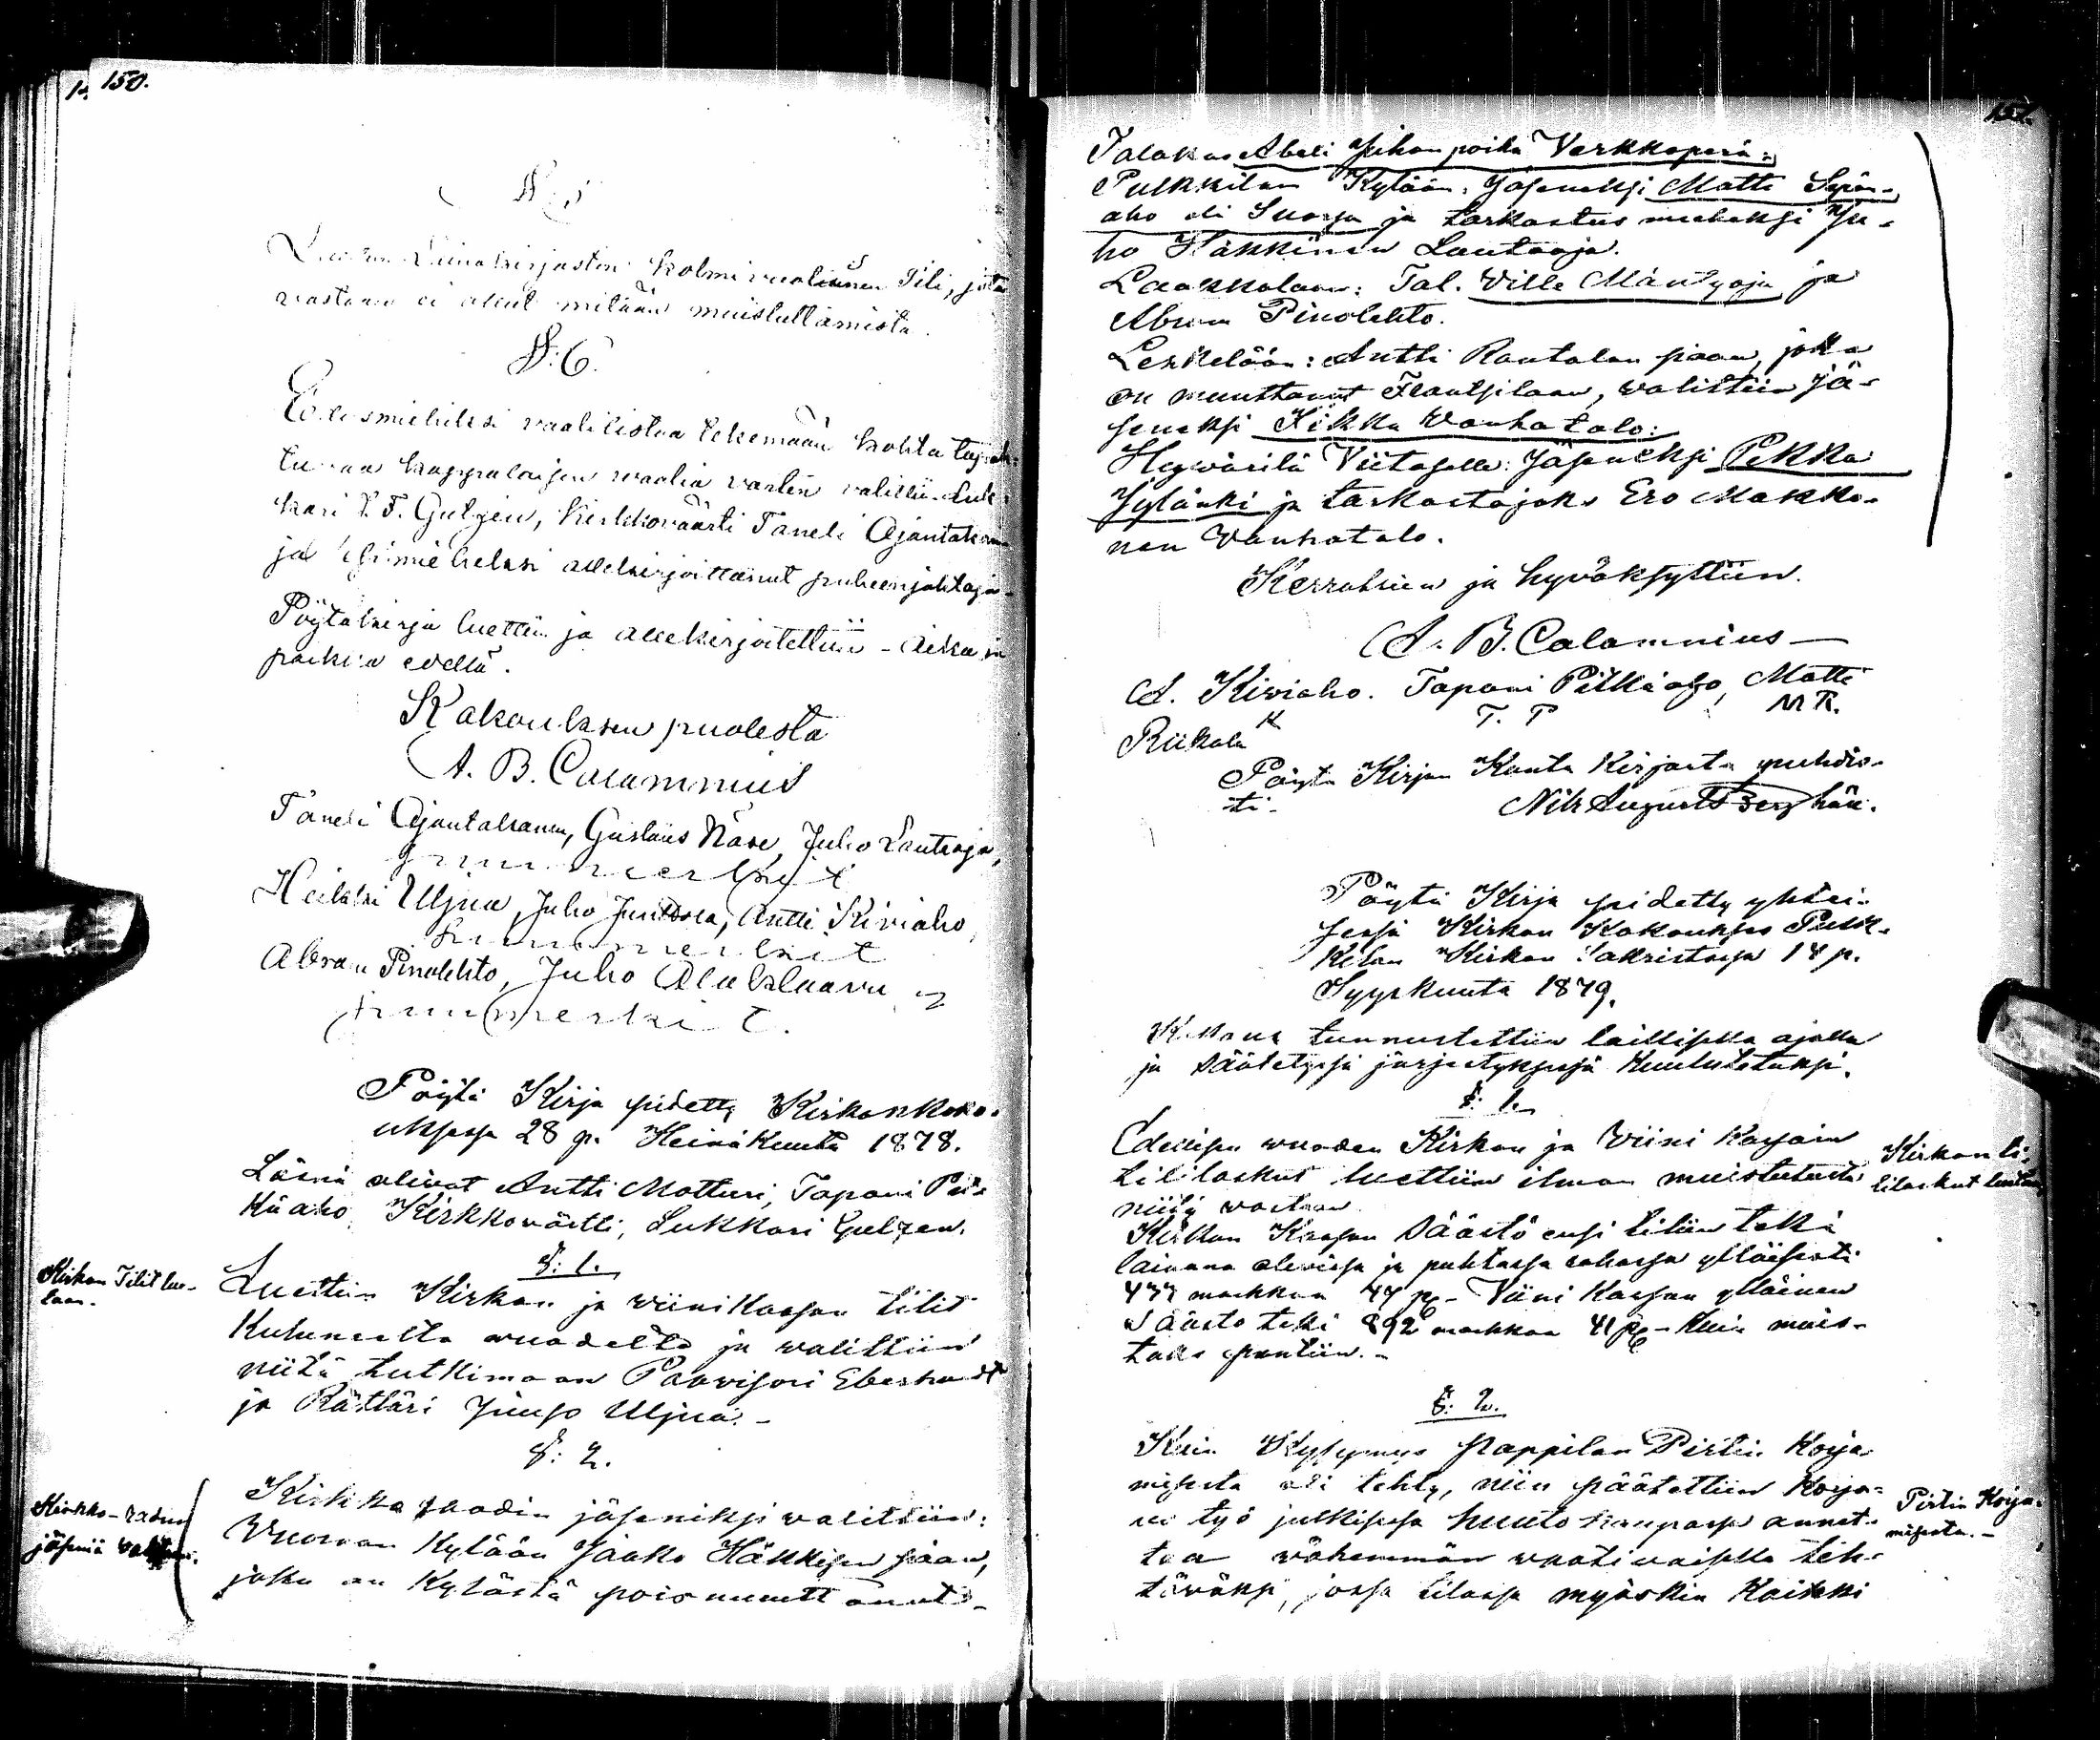 150.
§ 5
Lainakirjaston kolmivuotinen Tili, jota
vastaan ei ollut mitään muistuttamista.
§: 6.
Edesmiehiksi vaalilistaa tekemään kohta tapah-
tuvaa kappalaisen waalia varten valittiin Luk-
kari F. Gulzen, Kirkkoväärti Taneli Ajantakanen
ja esimieheksi allekirjoittanut puheenjohtaja.
Pöytäkirja luettiin ja allekirjoitettiin - Aika ja
paikka edellä.
Kokouksen puolesta
A. B. Calamnius
Taneli Ajantakanen, Gustaus Näse, Juho Lautaoja,
puumerkit
Heikki Uljua, Juho Junttola, Antti Kiviaho,
puumerkit
Abram Pinolehto, Juho Ala Klaavu
puumerkit.
Pöytä Kirja pidetty Kirkonkoko-
uksessa 28 p. Heinä Kuuta 1878.
Läsnä olivat Antti Matturi, Tapani Pit-
käaho Kirkkovärtti, Lukkari Gulzen.
§: 1.
Kirkon Tilit lue-
taan.
Luettiin Kirkon ja wiiniKassan tilit
Kuluneelta wuodelta ja walittiin
niitä tutkimaan Provisori Eberhardt
ja Rättäri Juuso Uljua.-
§: 2.
Kirkko-raadin
jäseniä valitaan.
Kirkko raadin jäseniksi walittiin:
Vuornan Kylään Jaako Häkkisen siaan,
joka on Kylästä pois muuttanut-
151.
Talokas Abeli Juhon poika Verkkoperä:
Pulkkilan Kylään: Jäseneksi Matti Sepän-
aho eli Suorsa ja tarkastus mieheksi Ju-
ho Häkkinen Lautaoja.
Laakkolaan: Tal. Wille Mäntyoja ja
Abram Pinolehto.
Leskelään: Antti Rautalan siaan, joka
on muuttanut Frantsilaan, walittiin jä-
seneksi Kikka Wanhatalo:
Hyvärilä Viitasalle: Jäseneksi Pekka
Jylänki ja tarkastajaks Ero Makko-
nen Wanhatalo.
Kerrattiin ja hyväksyttiin.
A. B. Calamnius
A. Kiviaho. Tapani Pitkäaho, Matti
K T. P M R.
Riikola
Pöytä Kirjan Kanta Kirjasta puhdis-
ti- Nils August Bergh än.
Pöytä Kirja pidetty yhtei-
sessä Kirkon Kokouksessa Pulk-
kilan Kirkon Sakristiassa 14 p.
Syyskuuta 1879.
Kokous tunnustettiin laillisella ajalla
ja säätetyssä järjestyksessä Kuulutetuksi.
§: 1.
Edellisen wuoden Kirkon ja Viini Kassain
tililaskut luettiin ilman muistutusta
niitä wastaan.
Kirkon ti-
lilaskut luetaan
Kirkon Kassan säästö ensi tiliin teki
lainana olevissa ja puhtaassa rahassa ylläisesti
477 markkaa 47 p.- Viini Kassan ylläinen
säästö teki 892 markkaa 41 p.- Kuin muis-
taks pantiin.-
§: 2.
Kuin Kysymys Pappilan Pirtin Korja-
misesta oli tehty, niin päätettiin Korja-
us työ julkisessa huuto kaupassa annet-
taa wähemmän waativaiselle teh-
täväksi, jossa tilassa myöskin Kaikki
Pirtin Korja-
misesta.-